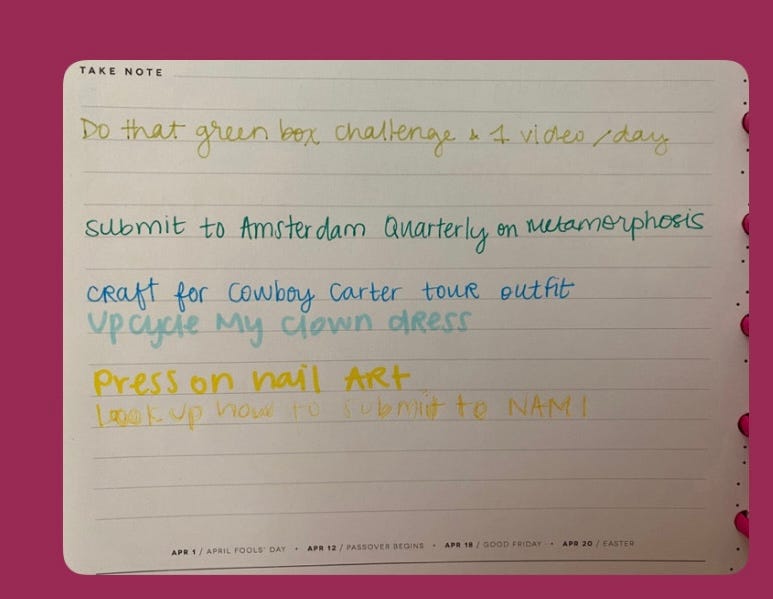 TAKE NOTE
Do that green box challenge & 1 video/day
submit to Amsterdam Quarterly on metamorphosis
craft for Cowboy Carter tour outfit
Upcycle My clown dress
Press on nail ART
Look up how to submit to NAMI
APR 1 / APRIL FOOLS' DAY • APR 12 / PASSOVER BEGINS • APR 18 / GOOD FRIDAY • APR 20 / EASTER